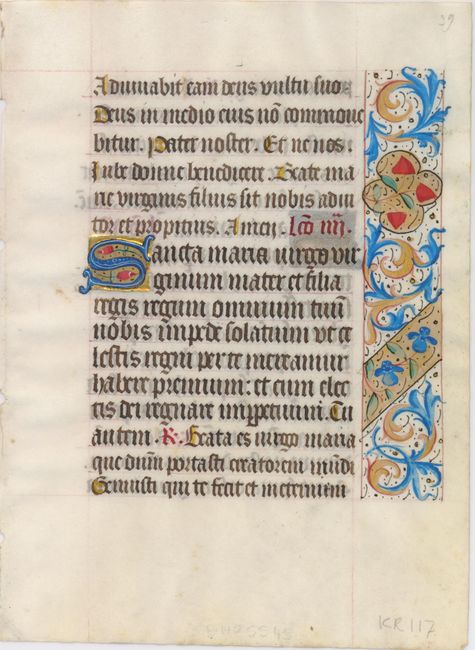 39
Adiuuabit eam deus vultu suo
Deus in medio eius nō commoue
bitur. Pater noster. Et ne nos.
Iube domne benedicere. Beate ma
rie virginis filius sit nobis adiu
tor et propitius. Amen. Lcō iiij.
Sancta maria uirgo vir
ginum mater et filia
regis regum omnium tuū
nobis īmpede solatium vt ce
lestis regni per te mereamur
habere premium: et cum elec
tis dei regnare imperpetuum. Tu
autem. R. Beata es uirgo maria
que dnm̄ portasti creatorem mūdi
Genuisti qui te fecit et in eternum
KR 117